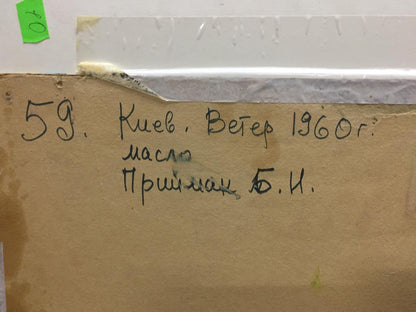 59. Киев. Ветер 1960г.
масло
Прийман Б.И.